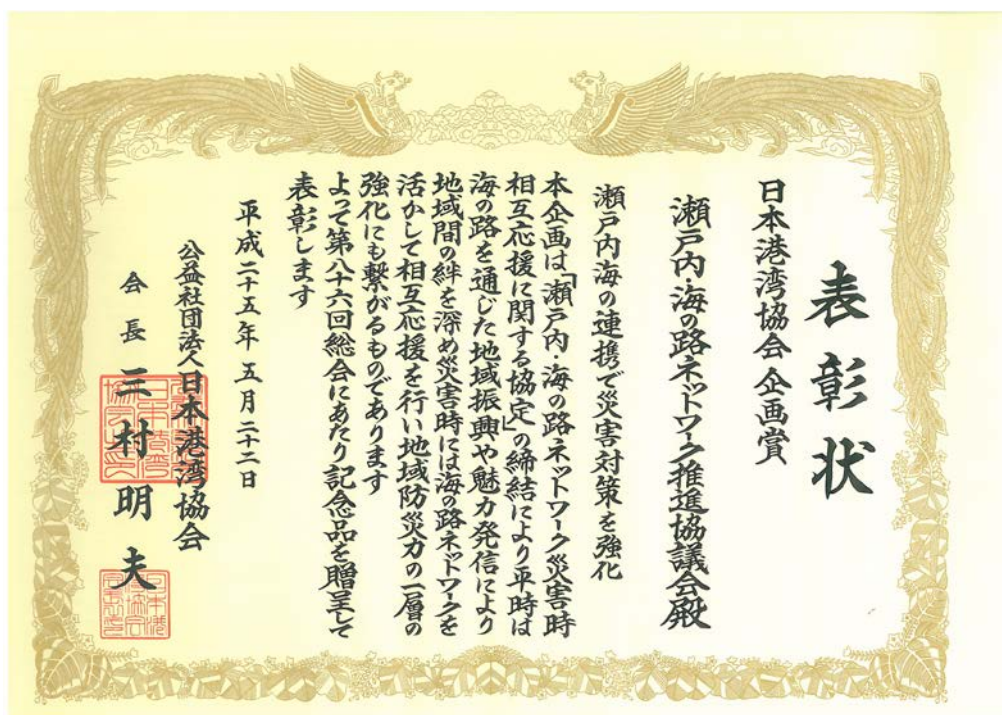 表彰状
日本港湾協会 企画賞
瀬戸内・海の路ネットワーク推進協議会殿
瀬戸内海の連携で災害対策を強化
本企画は「瀬戸内・海の路ネットワーク災害時
相互応援に関する協定」の締結により平時は
海の路を通じた地域振興や魅力発信により
地域間の絆を深め災害時には海の路ネットワークを
活かして相互応援を行い地域防災力の一層の
強化にも繋がるものであります
よって第八十六回総会にあたり記念品を贈呈して
表彰します
平成二十五年五月二十二日
公益社団法人日本港湾協会
会長 三村明夫